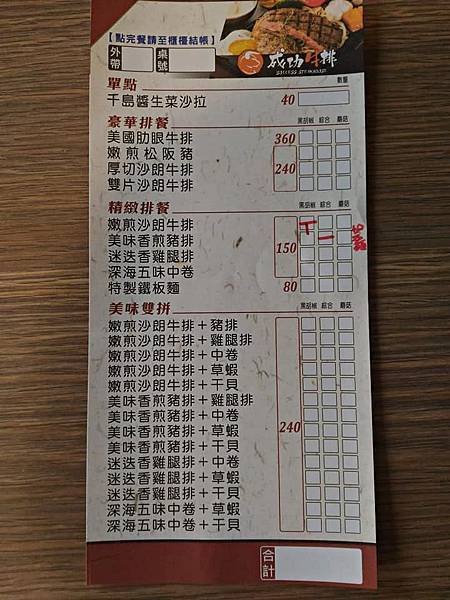 【點完餐請至櫃檯結帳】
外帶 桌號
成功牛排
SUCCESS STEAKHOUSE
單點 數量
千島醬生菜沙拉 40
豪華排餐 黑胡椒 綜合 蘑菇
美國肋眼牛排 360
嫩煎松阪豬
厚切沙朗牛排 240
雙片沙朗牛排
精緻排餐 黑胡椒 綜合 蘑菇
嫩煎沙朗牛排
美味香煎豬排
迷迭香雞腿排 150
深海五味中卷
特製鐵板麵 80
美味雙拼 黑胡椒 綜合 蘑菇
嫩煎沙朗牛排+豬排
嫩煎沙朗牛排+雞腿排
嫩煎沙朗牛排+中卷
嫩煎沙朗牛排+草蝦
嫩煎沙朗牛排+干貝
美味香煎豬排+雞腿排
美味香煎豬排+中卷
美味香煎豬排+草蝦 240
美味香煎豬排+干貝
迷迭香雞腿排+中卷
迷迭香雞腿排+草蝦
迷迭香雞腿排+干貝
深海五味中卷+草蝦
深海五味中卷+干貝
合計